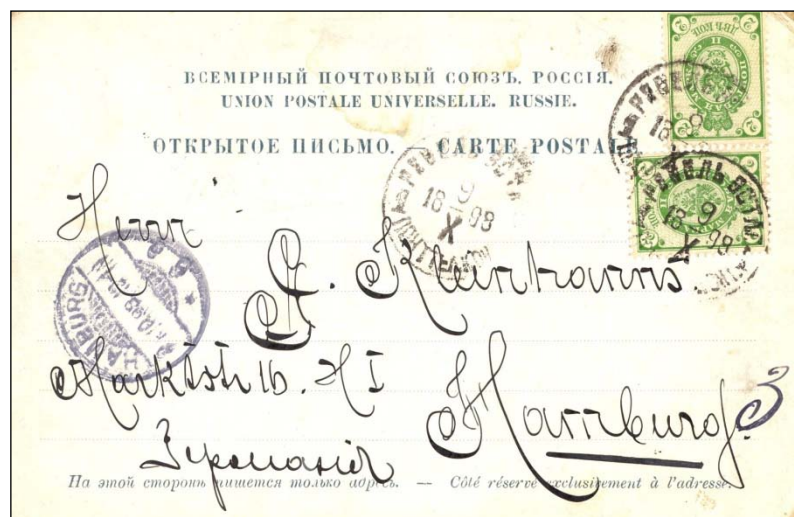 ВСЕМІРНЫЙ ПОЧТОВЫЙ СОЮЗЪ. РОССІЯ.
UNION POSTALE UNIVERSELLE. RUSSIE.
ОТКРЫТОЕ ПИСЬМО. — CARTE POSTALE
РЕВЕЛЬ
18 9 98
X
РЕВЕЛЬ ЭСТЛ
18 9 98
X
РЕВЕЛЬ
18 9 98
X
HAMBURG
Herrn
Marktstr 16. H I
Hamburg. 3
Германія
На этой сторонѣ пишется только адресъ. — Côté réservé exclusivement à l'adresse.